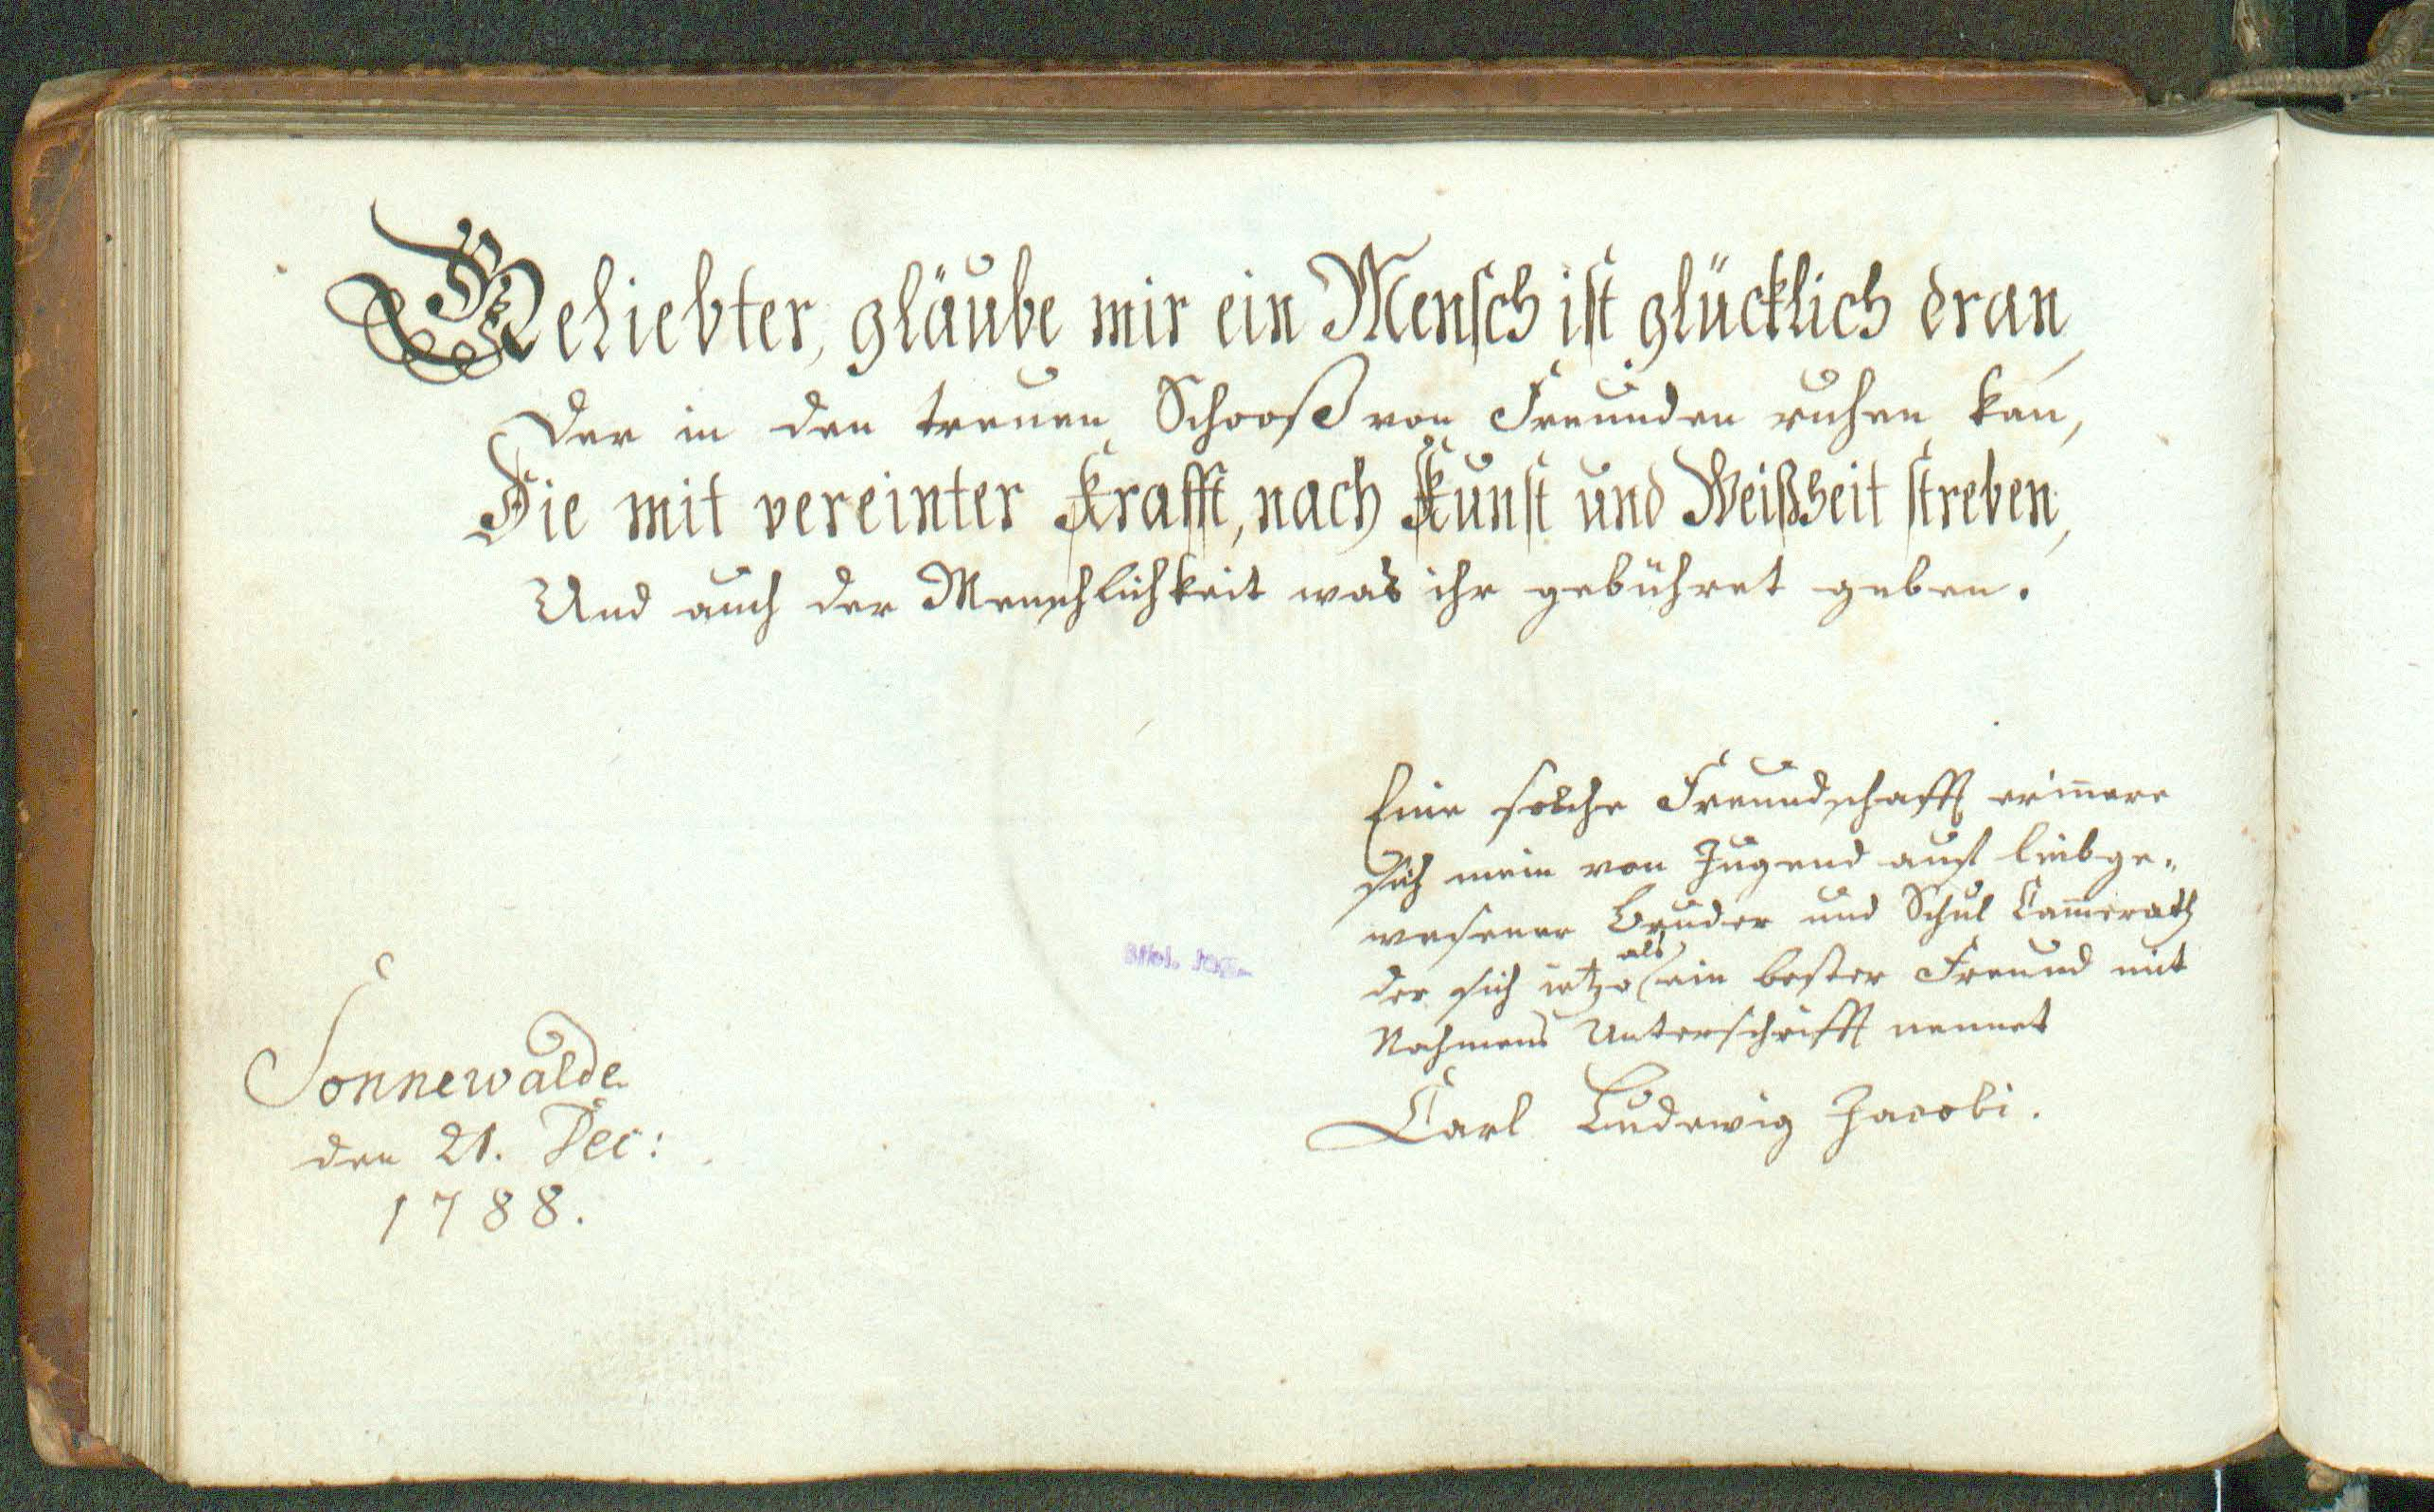 Geliebter, gläube mir ein Mensch ist glücklich dran,
Der in den treuen Schooß von Freunden ruhen kan̄,
Die mit vereinter Krafft, nach Kunst und Weißheit streben,
Und auch der Menschlichkeit was ihr gebühret geben.
Eine solche Freundschafft erin̄ere
sich mein von Jugend auf liebge-
wesener Bruder und Schul Cam̄erath
als
der sich ietzo ein bester Freund mit
Nahmens Unterschrifft nennet
Carl Ludewig Jacobi.
Sonnewalde
den 21. Dec:
1788.